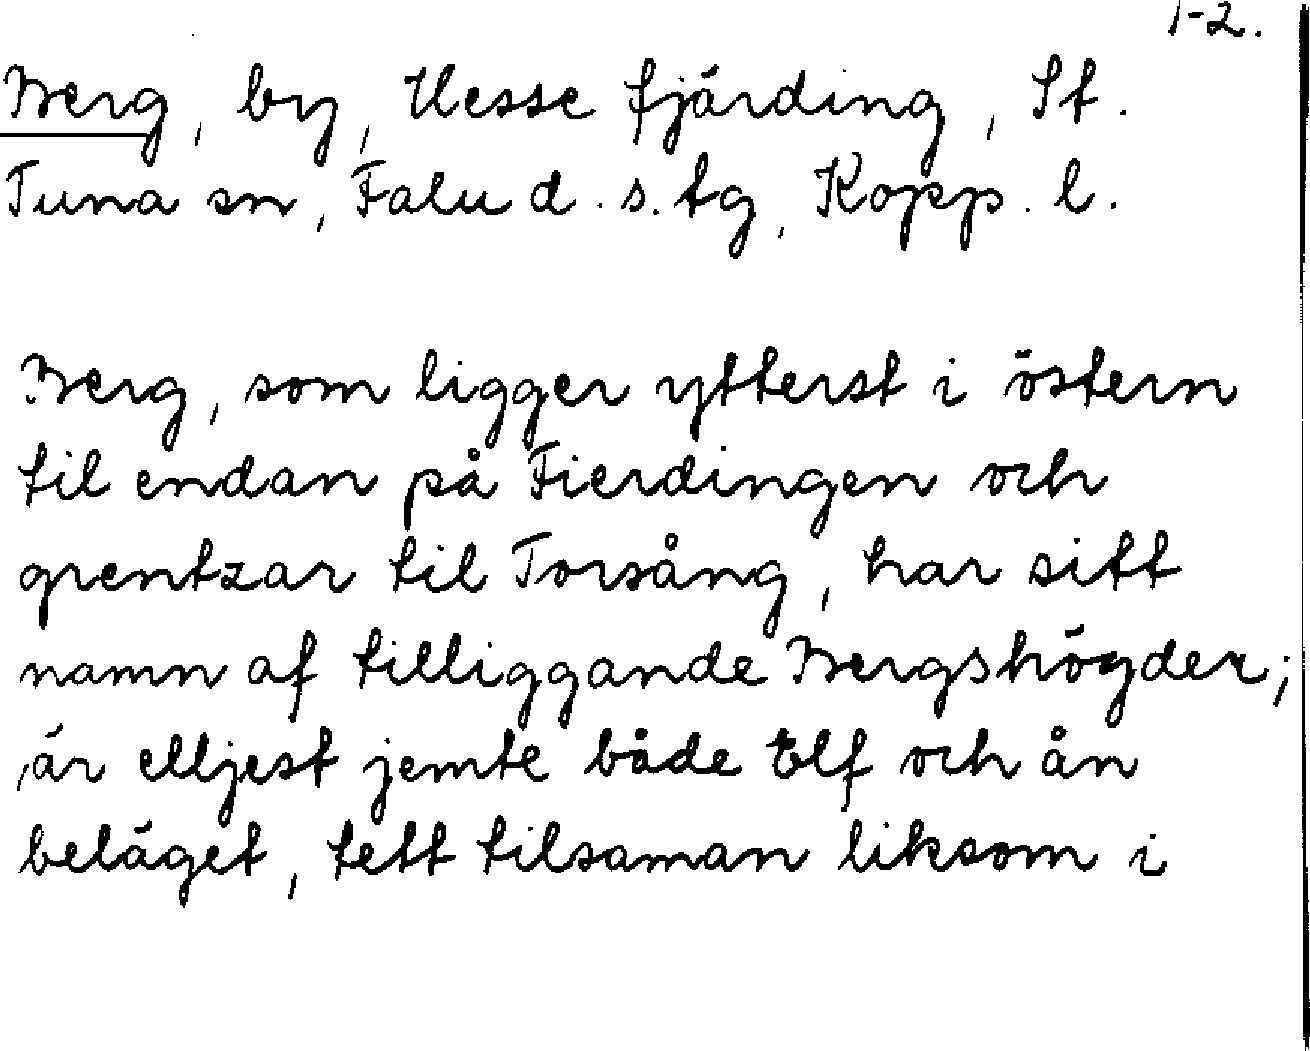 1-2.
Berg, by, Uesse fjärding, St.
Tuna sn, Falu d. s. tg, Kopp. l.
Berg, som ligger ytterst i östern
til endan på Fierdingen och
grentzar til Torsång, har sitt
namn af tilliggande Bergshögder;
är elljest jemte både Elf och ån
beläget, tett tilsaman liksom i